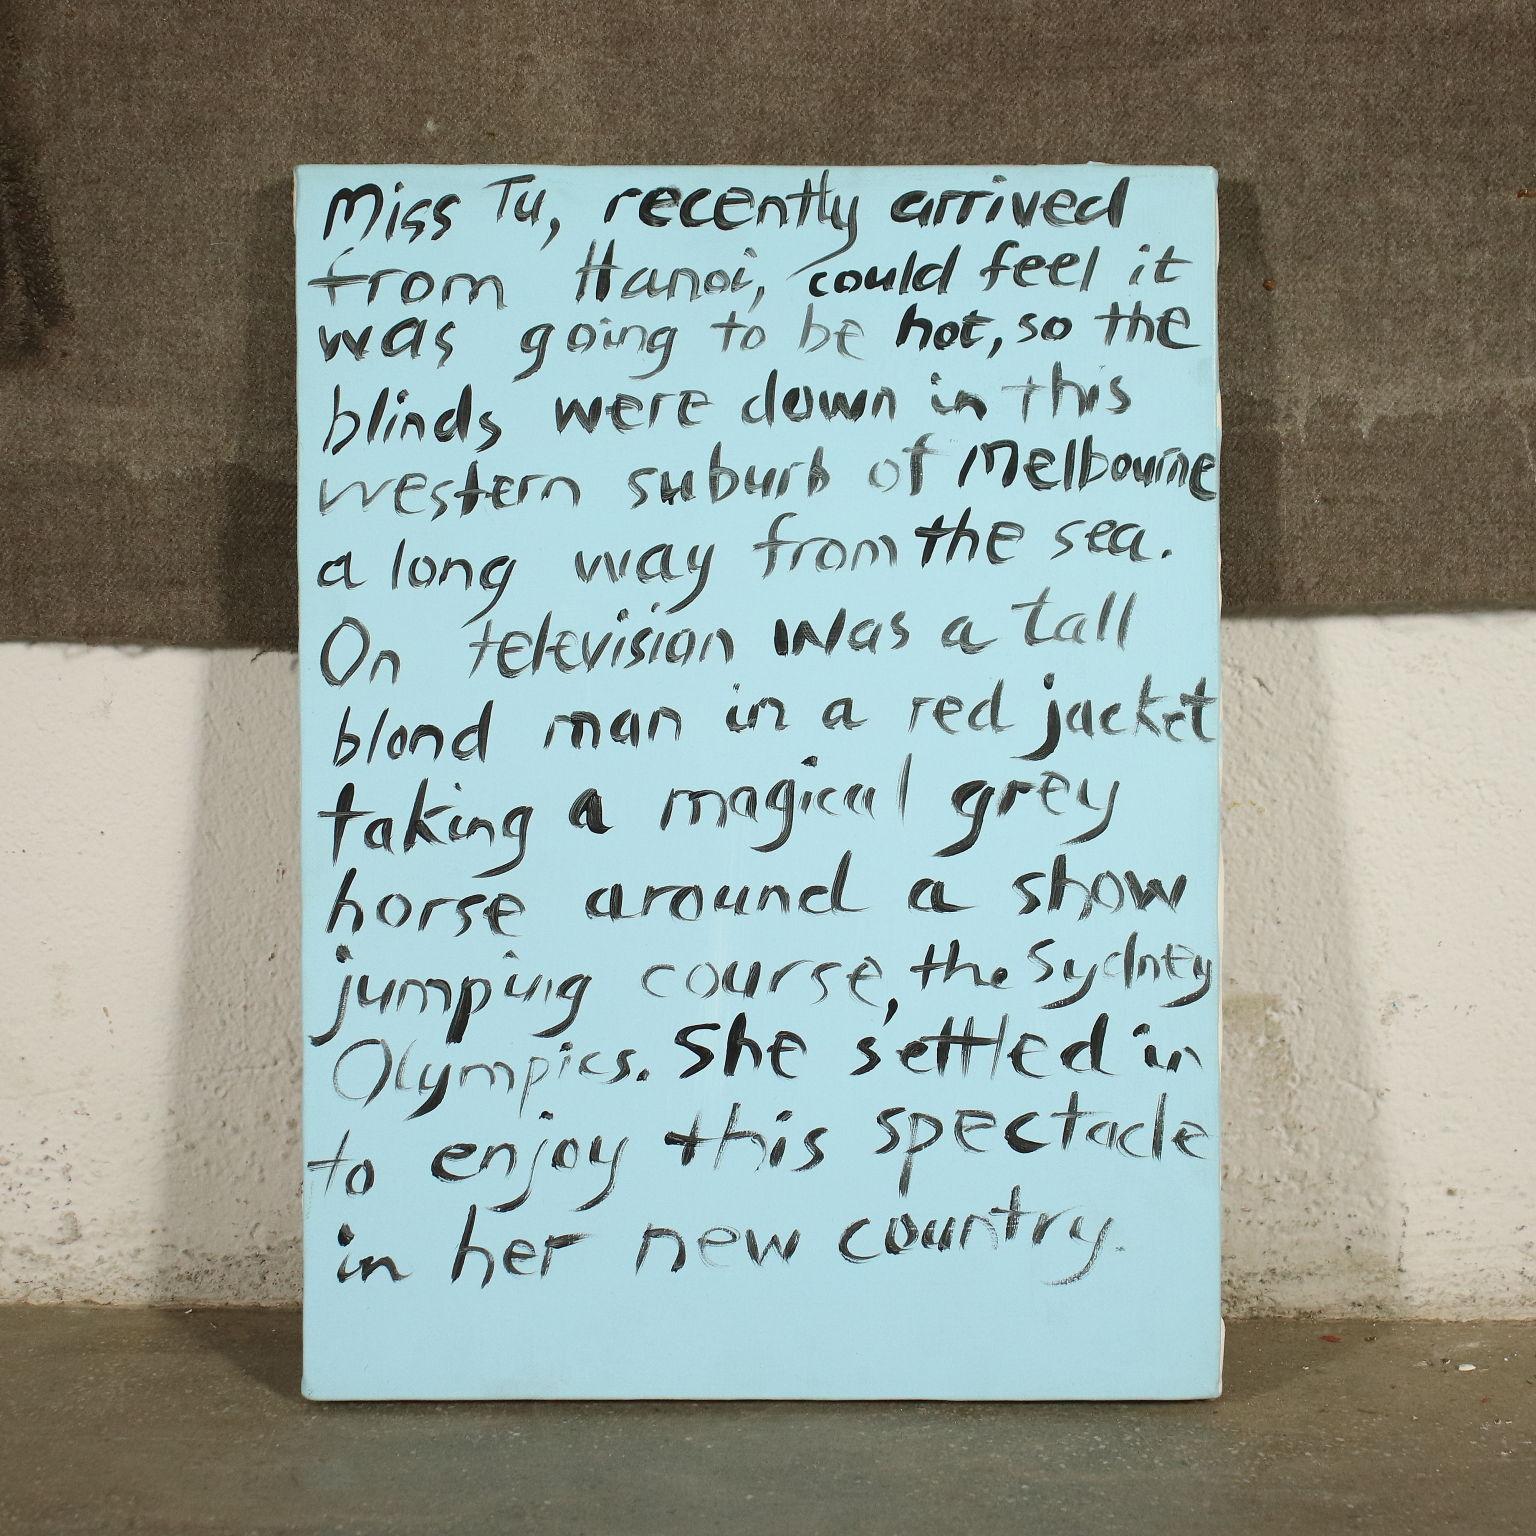 Miss Tu, recently arrived
from Hanoi, could feel it
was going to be hot, so the
blinds were down in this
western suburb of Melbourne
a long way from the sea.
On television was a tall
blond man in a red jacket
taking a magical grey
horse around a show
jumping course, the Sydney
Olympics. She settled in
to enjoy this spectacle
in her new country.